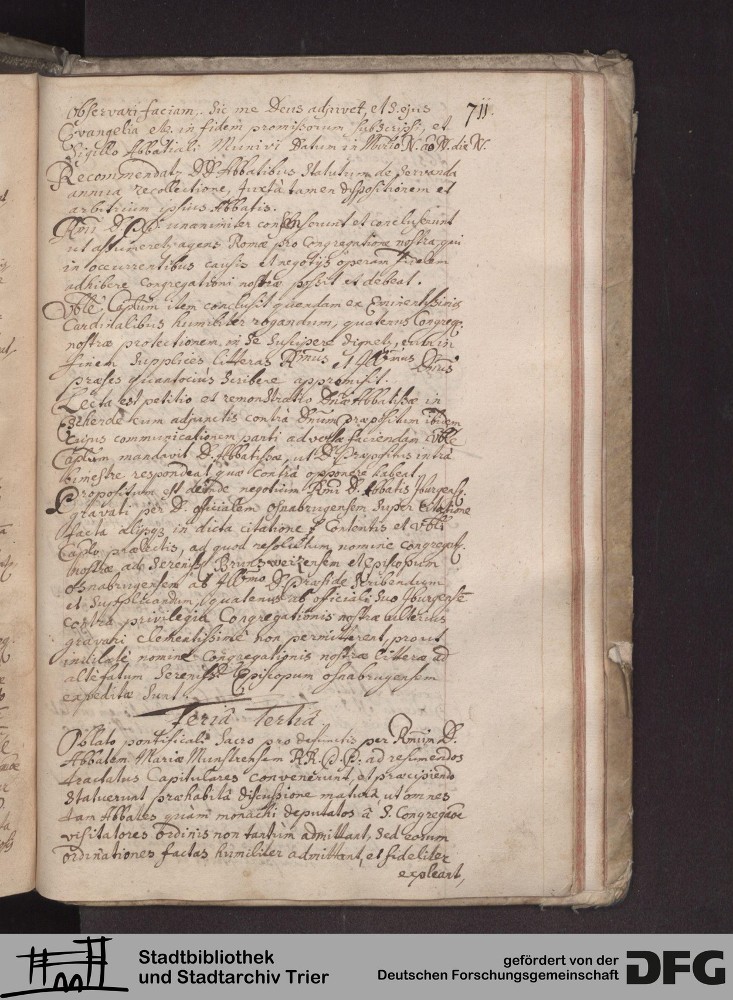 observari faciam. Sic me Deus adjuvet, et S. ejus
711.
Evangelia etc. in fidem promissorum subscripsi, et
Sigillo Abbatiali Munivi Datum in Mõrio N. aõ N. die N.
Recommendatz DD. Abbatibus Statutum de servanda
annua recollectione, juxtà tamen dispositionem et
arbitrium ipsius Abbatis.
Rmi D. unanimiter consenserunt et concluserunt
ut assumeretr agens Romæ pro Congregatione nostra, qui
in occurrentibus causis et negotijs operam fidelem
adhibere Congregationi nostræ possit et debeat.
Vble Caplum item conclusit quendam ex Eminentissimis
Cardinalibus humiliter rogandum, quatenus Congreg:
nostræ protectionem in se suscipere dignetr,
finem supplices litteras Rmus et Dnus
præses quantociùs scribere appromisit.
Lecta est petitio et remonstratio Dnæ Abbatissæ in
Herde cum adjunctis contrà Dnum præpositum ibidem
cujus communicationem parti adversæ faciendam Vble
Caplum mandavit D. Abbatissæ, ut D. Præpositus intrà
bimestre respondeat, quæ contrà opponere habeat.
Propositum est deinde negotium Rmi D. Abbatis Iburgens:
gravati per D. officialem osnabrugensem super Citatione
facta in dicta citatione contentis et Vbli
Caplo prælectis, ad quod resolutum nomine Congregat:
nostræ ad Sereniss: Brunsweizensem et Episcopum
osnabrugensem à D. Præside scribendum
et supplicandum, quatenus ab officiali suo Iburgense
contra privilegia Congregationis nostræ ulterius
gravari clementissimè non permitterent, prout
nomine Congregationis nostræ litteræ ad
altefatum Sereniss: Episcopum osnabrugensem
expeditæ sunt.
Feriâ Tertiâ
Oblato pontificali Sacro pro defunctis per Rmum D.
Abbatem Mariæ Munstrensem RR. PP: ad resumendos
tractatus Capitulares convenerunt, et præcipiendo
statuerunt præhabitâ discussione maturâ ut omnes
tam Abbates quàm monachi deputatos à S. Congregaõe
visitatores ordinis non tantùm admittant, sed eorum
ordinationes factas humiliter admittant, et fideliter
expleant,
Stadtbibliothek
und Stadtarchiv Trier
gefördert von der
Deutschen Forschungsgemeinschaft
DFG